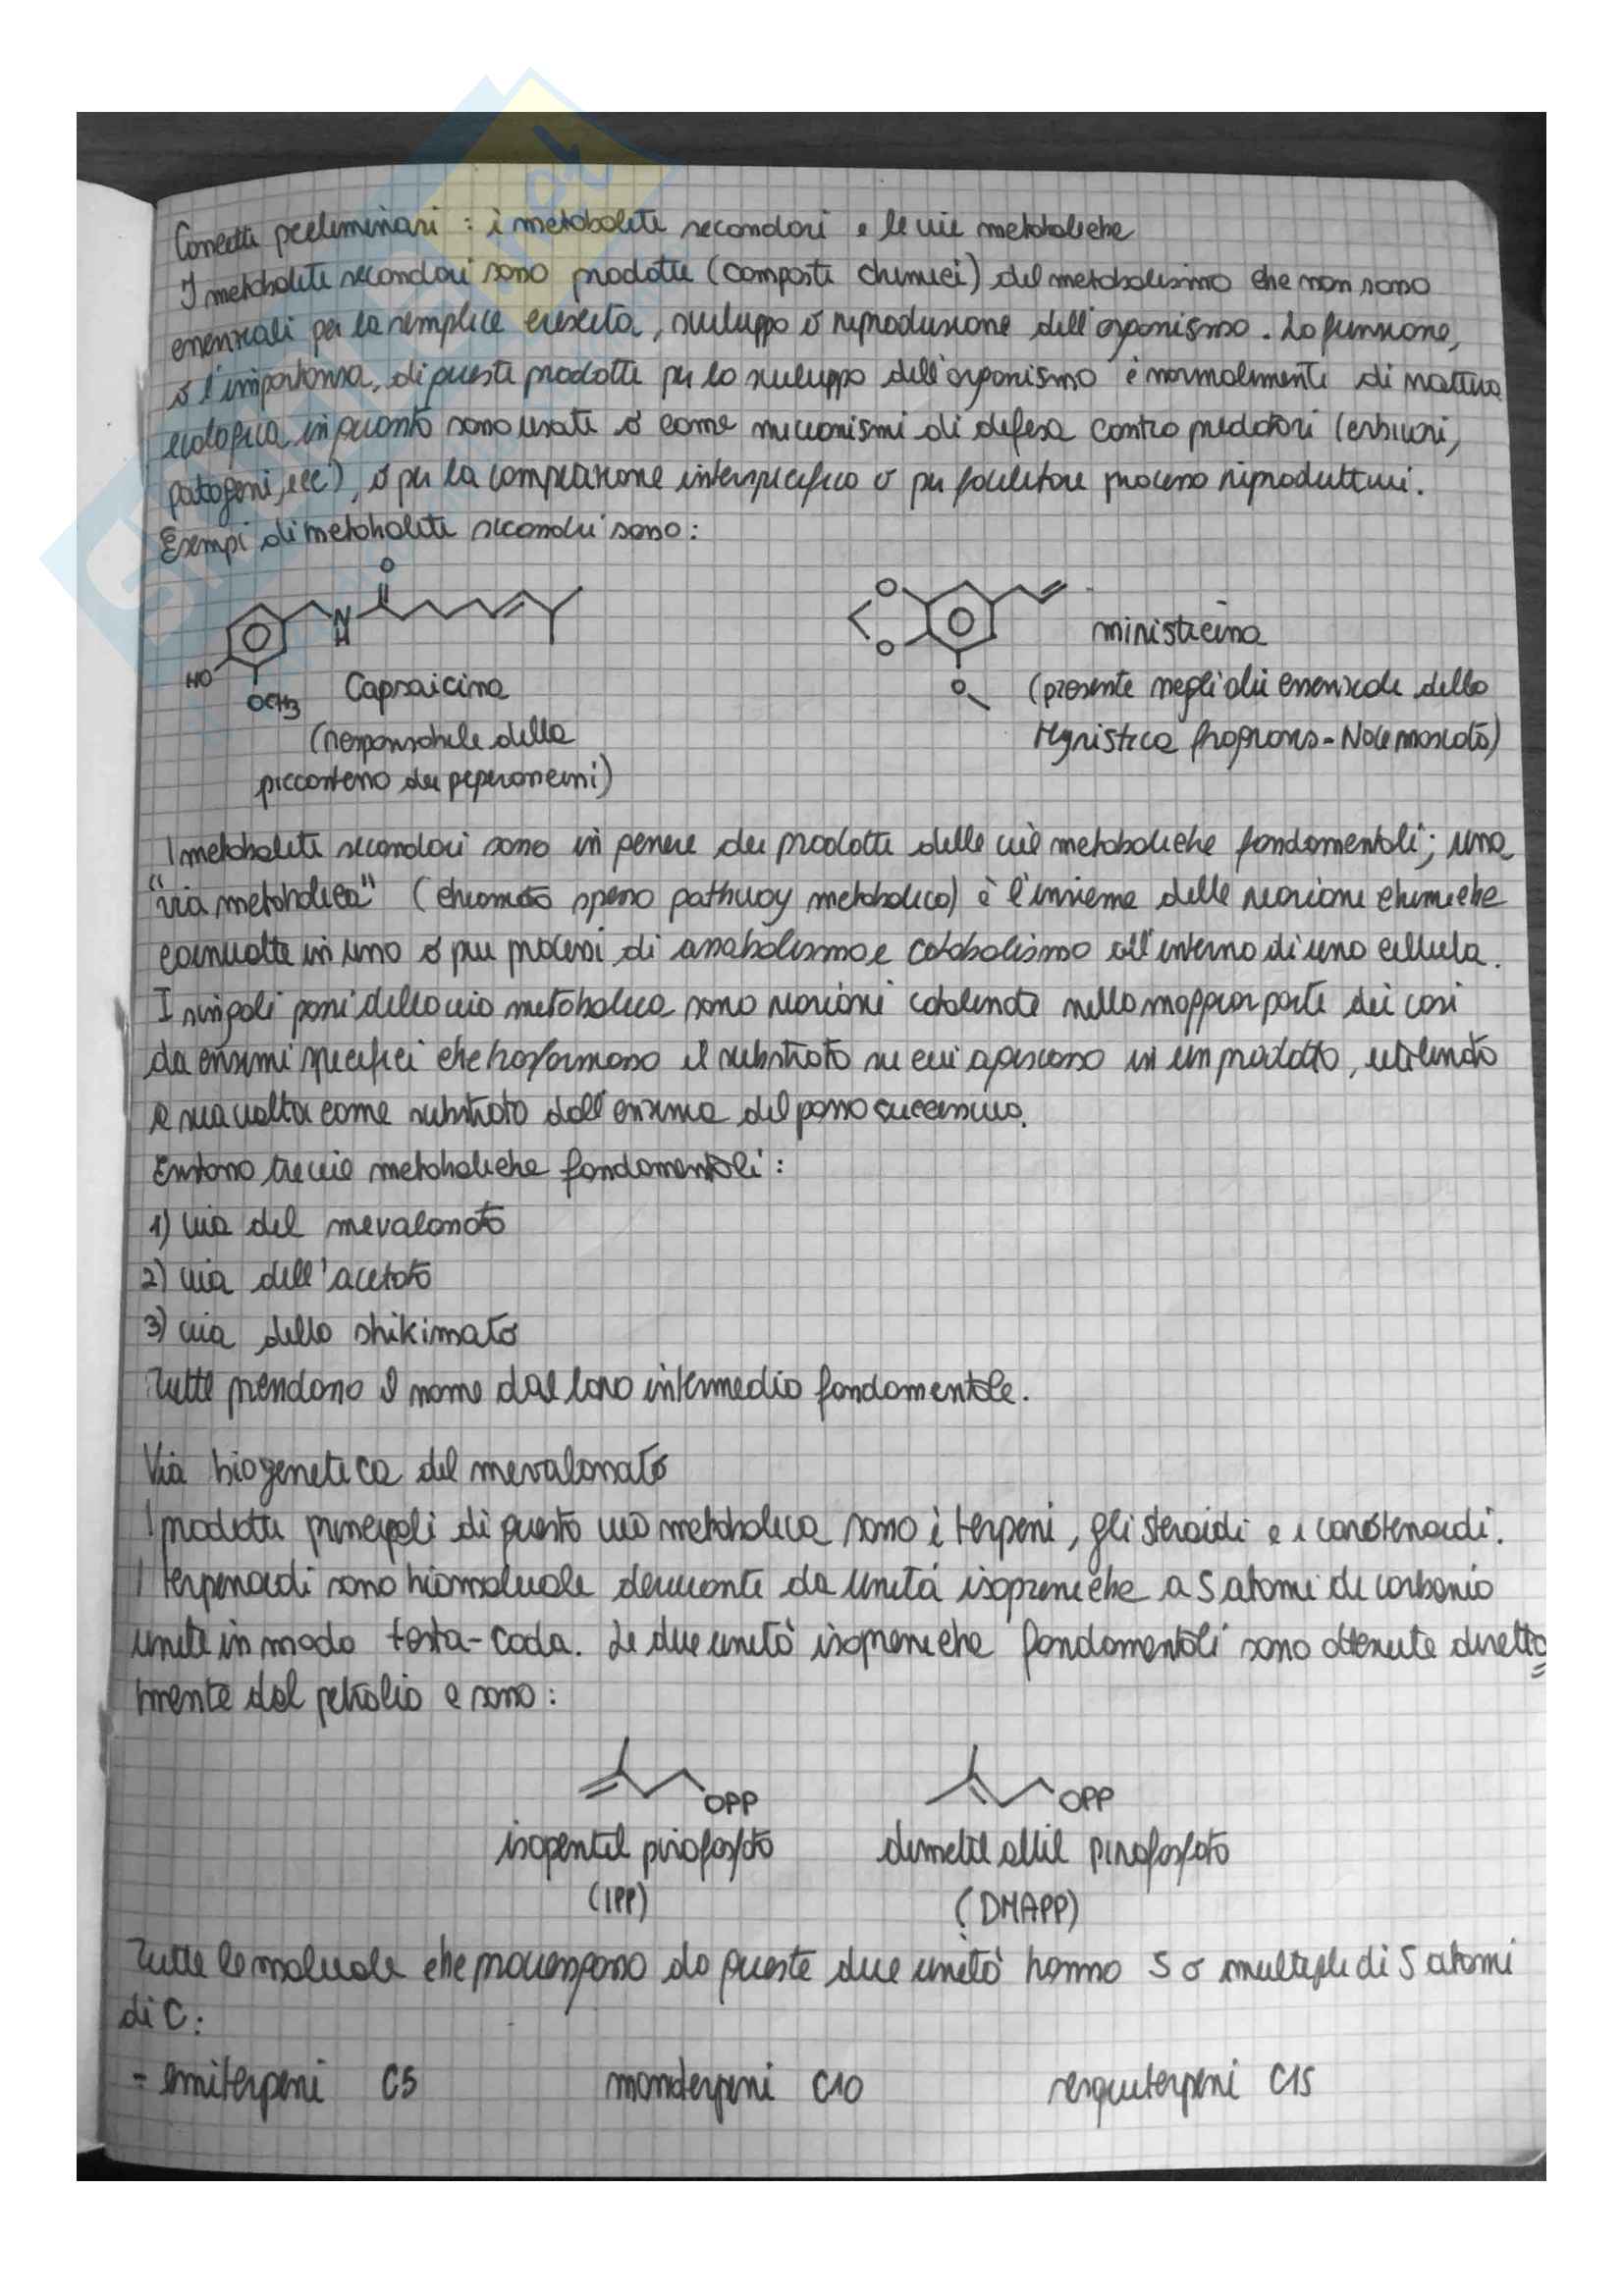 Concetti preliminari : i metaboliti secondari e le vie metaboliche
I metaboliti secondari sono prodotti (composti chimici) del metabolismo che non sono
essenziali per la semplice crescita, sviluppo o riproduzione dell'organismo. La funzione,
o l'importanza, di questi prodotti per lo sviluppo dell'organismo è normalmente di natura
ecologica in quanto sono usati o come meccanismi di difesa contro predatori (erbivori,
patogeni, ecc), o per la competizione interspecifica o per facilitare processi riproduttivi.
Esempi di metaboliti secondari sono:
O
N
H
HO
OCH3
Capsaicina
(responsabile della
piccantezza dei peperoncini)
O
O
O
miristicina
(presente negli olii essenziale della
Myristica fragrans - Noce moscata)
I metaboliti secondari sono in genere dei prodotti delle vie metaboliche fondamentali; una
"via metabolica" (chiamata spesso pathway metabolico) è l'insieme delle reazioni chimiche
coinvolte in uno o più processi di anabolismo e catabolismo all'interno di una cellula.
I singoli passi della via metabolica sono reazioni catalizzate nella maggior parte dei casi
da enzimi specifici che trasformano il substrato su cui agiscono in un prodotto, utilizzato
a sua volta come substrato dall'enzima del passo successivo.
Esistono tre vie metaboliche fondamentali:
1) via del mevalonato
2) via dell'acetato
3) via dello shikimato
Tutte prendono il nome dal loro intermedio fondamentale.
Via biogenetica del mevalonato
I prodotti principali di questa via metabolica sono i terpeni, gli steroidi e i carotenoidi.
I terpenoidi sono biomolecole derivanti da unità isopreniche a 5 atomi di carbonio
unite in modo testa-coda. Le due unità isopreniche fondamentali sono ottenute diretta
mente dal petrolio e sono:
OPP
isopentil pirofosfato
(IPP)
OPP
dimetil allil pirofosfato
(DMAPP)
Tutte le molecole che provengono da queste due unità hanno 5 o multipli di 5 atomi
di C:
- emiterpeni C5 monoterpeni C10 sesquiterpeni C15